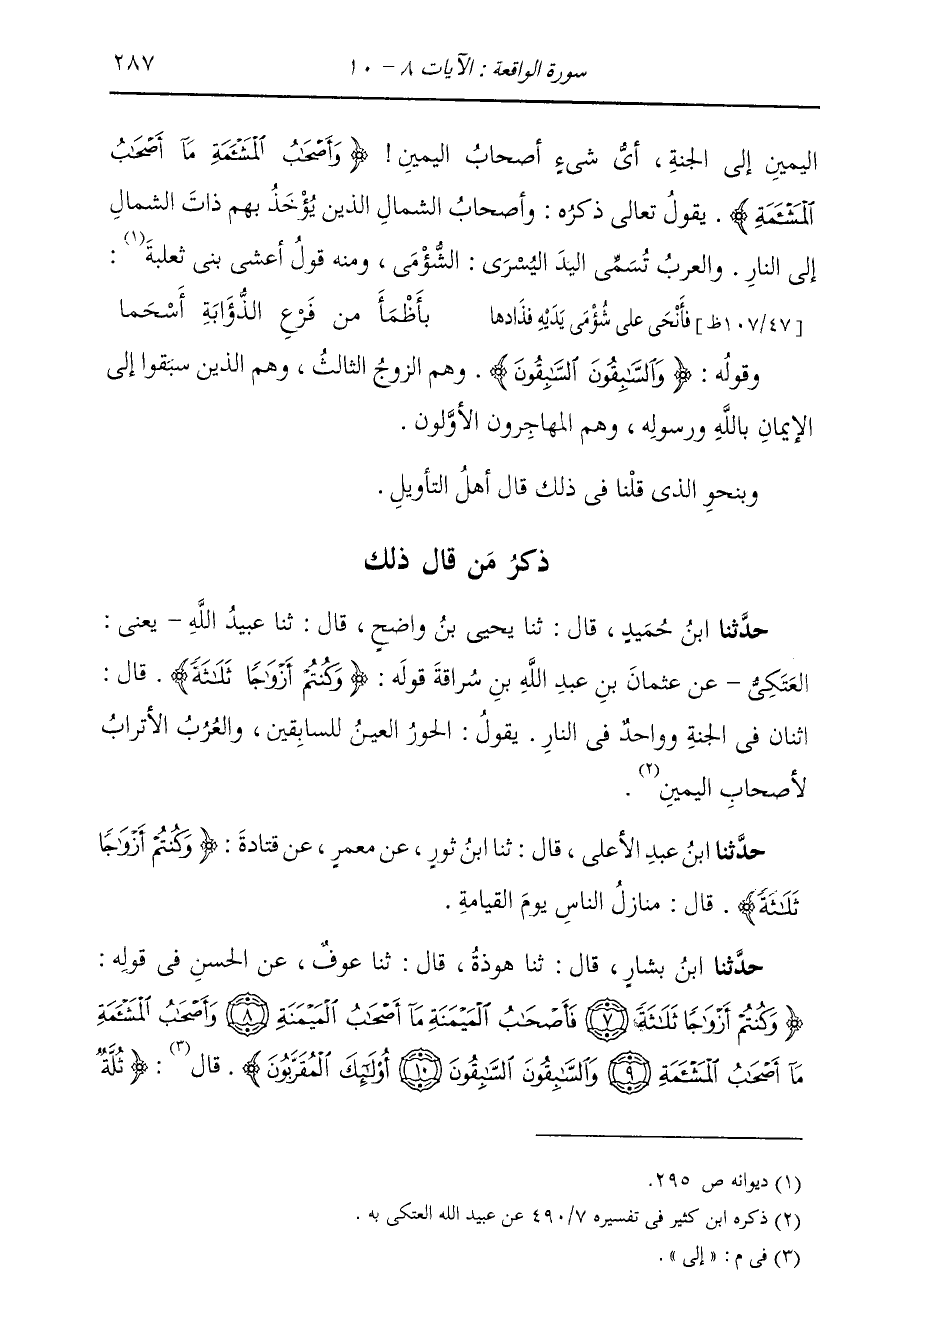 سورة الواقعة : الآيات ٨ - ١٠ ٢٨٧
اليمينِ إلى الجنةِ ، أىُّ شىءٍ أصحابُ اليمينِ ! ﴿ وَأَصْحَٰبُ ٱلْمَشْـَٔمَةِ مَآ أَصْحَٰبُ
ٱلْمَشْـَٔمَةِ ﴾ . يقولُ تعالى ذكرُه : وأصحابُ الشمالِ الذين يُؤْخَذُ بهم ذاتَ الشمالِ
إلى النارِ . والعربُ تُسَمِّى اليدَ اليُسْرَى : الشُّؤْمَى ، ومنه قولُ أعشى بنى ثعلبةَ(١) :
[٤٧/١٠٧ظ] فأَنْحَى على شُؤْمَى يَدَيْهِ فذَادها بأَظْمَأَ من فَرْعِ الذُّؤَابَةِ أَسْحَما
وقولُه : ﴿ وَٱلسَّٰبِقُونَ ٱلسَّٰبِقُونَ ﴾ . وهم الزوجُ الثالثُ ، وهم الذين سبَقوا إلى
الإيمانِ باللَّهِ ورسولِه ، وهم المهاجِرون الأوَّلون .
وبنحوِ الذى قلْنا فى ذلك قال أهلُ التأويلِ .
ذكرُ مَن قال ذلك
حدَّثنا ابنُ حُمَيدٍ ، قال : ثنا يحيى بنُ واضحٍ ، قال : ثنا عبيدُ اللَّهِ - يعنى :
العَتَكِىَّ - عن عثمانَ بنِ عبدِ اللَّهِ بنِ سُراقةَ قولَه : ﴿ وَكُنتُمْ أَزْوَٰجًا ثَلَٰثَةً ﴾ . قال :
اثنان فى الجنةِ وواحدٌ فى النارِ . يقولُ : الحورُ العينُ للسابِقين ، والعُرُبُ الأترابُ
لأصحابِ اليمينِ(٢) .
حدَّثنا ابنُ عبدِ الأعلى ، قال : ثنا ابنُ ثورٍ ، عن معمرٍ ، عن قتادةَ : ﴿ وَكُنتُمْ أَزْوَٰجًا
ثَلَٰثَةً ﴾ . قال : منازلُ الناسِ يومَ القيامةِ .
حدَّثنا ابنُ بشارٍ ، قال : ثنا هوذةُ ، قال : ثنا عوفٌ ، عن الحسنِ فى قولِه :
﴿ وَكُنتُمْ أَزْوَٰجًا ثَلَٰثَةً (٧) فَأَصْحَٰبُ ٱلْمَيْمَنَةِ مَآ أَصْحَٰبُ ٱلْمَيْمَنَةِ (٨) وَأَصْحَٰبُ ٱلْمَشْـَٔمَةِ
مَآ أَصْحَٰبُ ٱلْمَشْـَٔمَةِ (٩) وَٱلسَّٰبِقُونَ ٱلسَّٰبِقُونَ (١٠) أُوْلَٰٓئِكَ ٱلْمُقَرَّبُونَ ﴾ . قال(٣) : ﴿ ثُلَّةٌ
(١) ديوانه ص ٢٩٥.
(٢) ذكره ابن كثير فى تفسيره ٤٩٠/٧ عن عبيد الله العتكى به .
(٣) فى م : « إلى » .